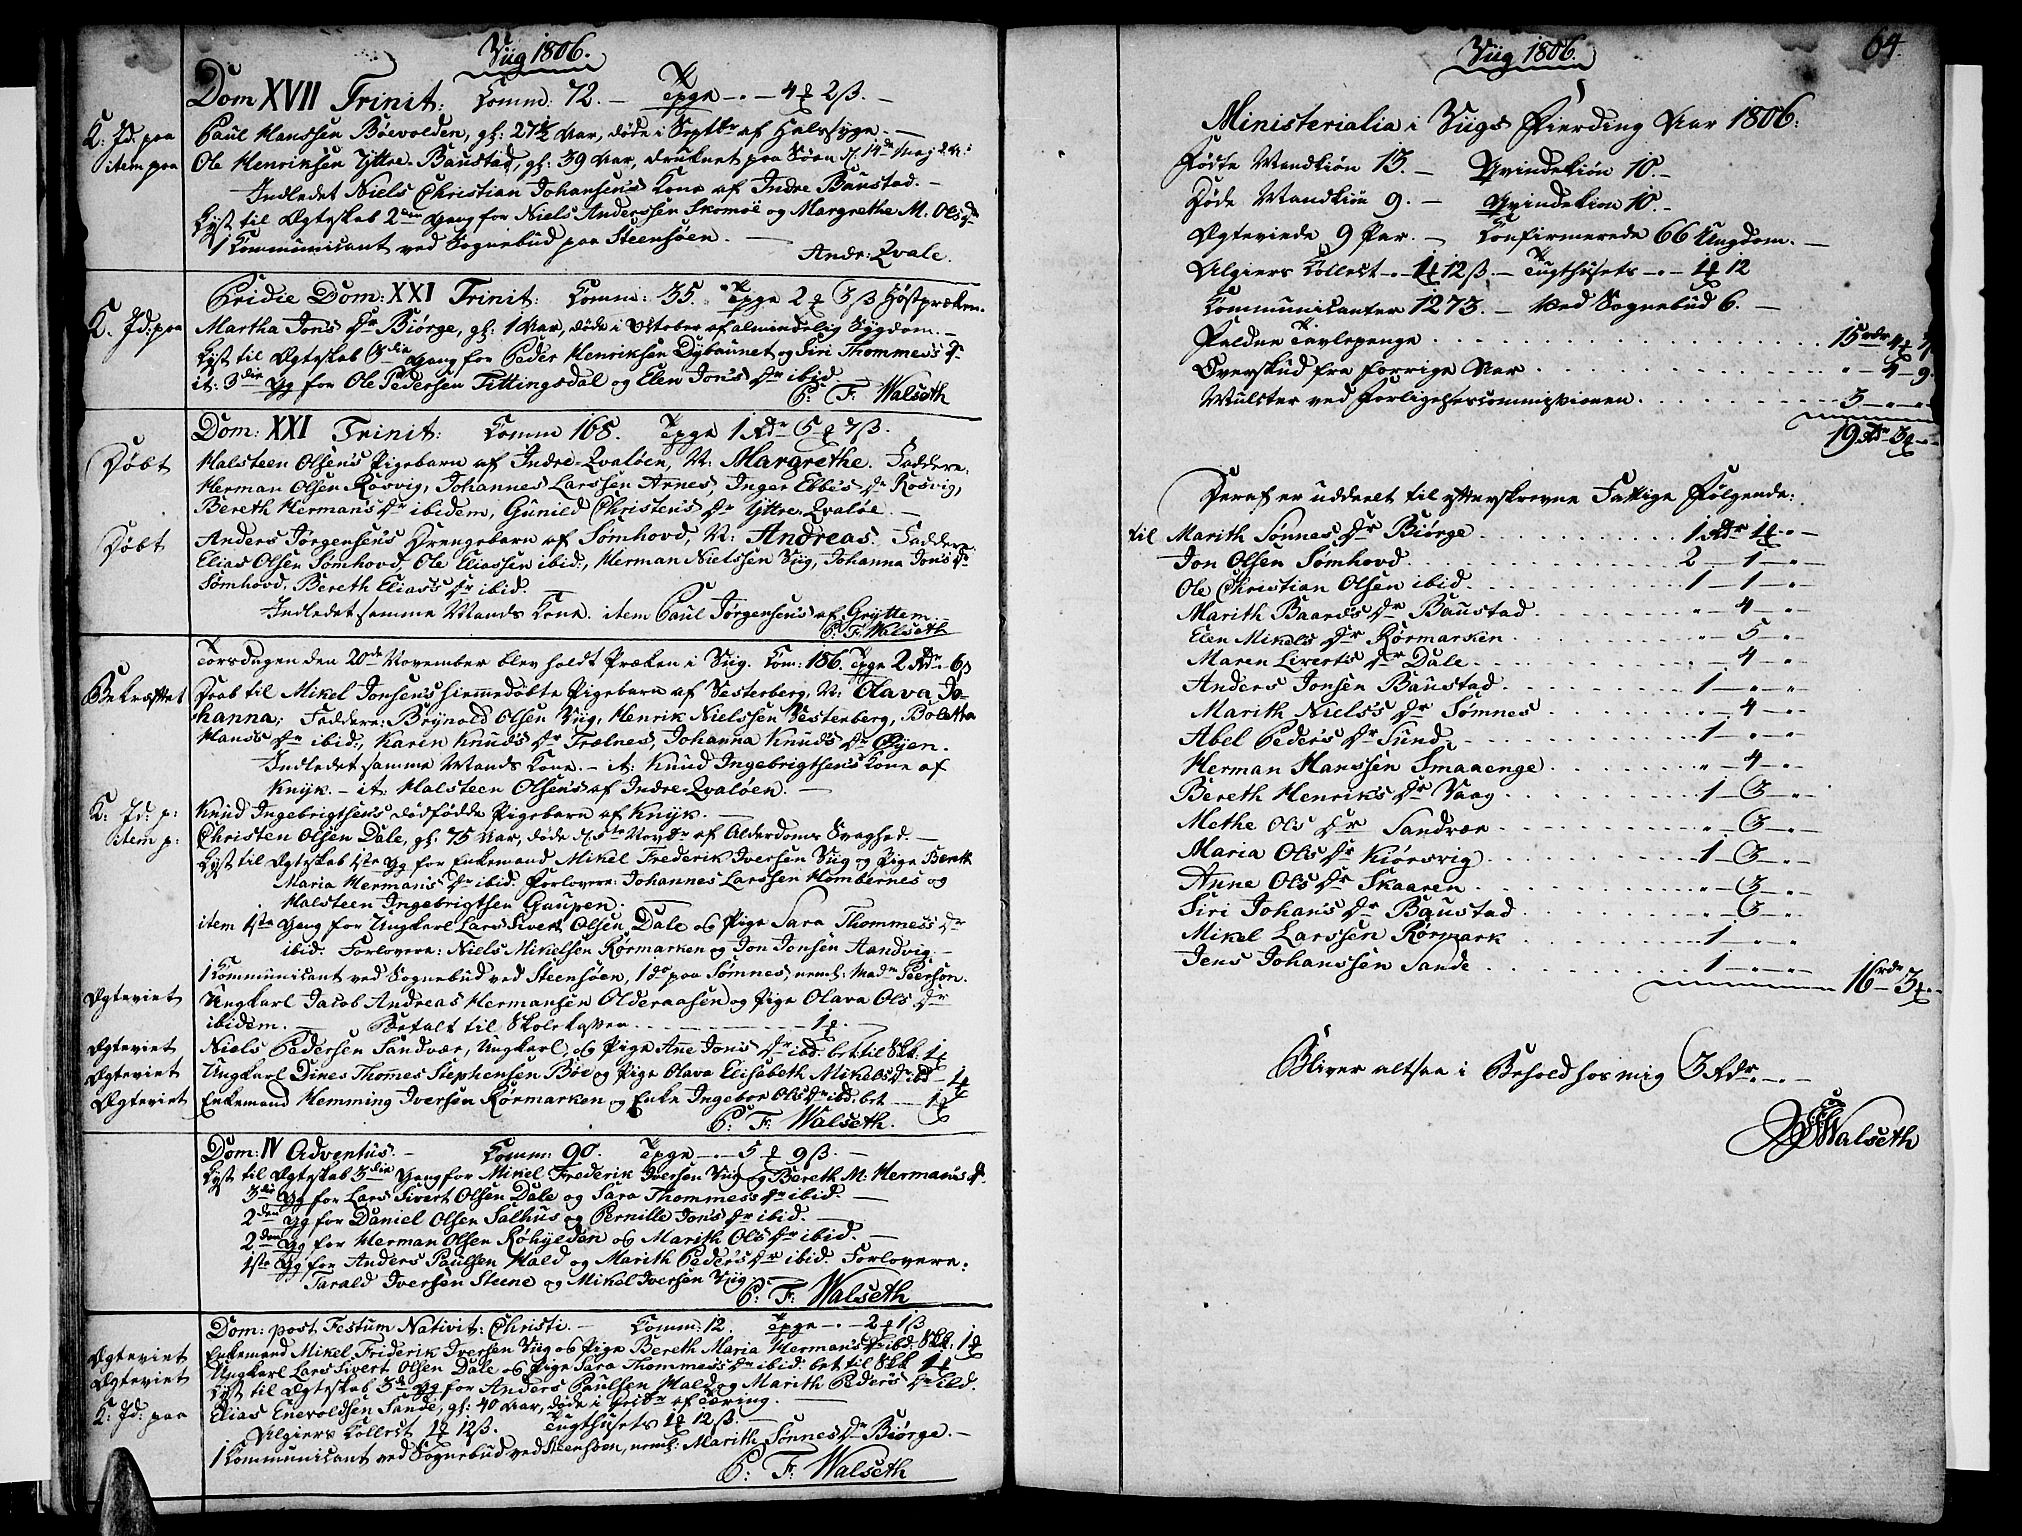 Viig 1806.
Dom XVII Trinit: Comm: 72. — Tpge —„— 4 ʠ 2 ß. —
K: Jd: paa Paul Hanssen Böevolden, gl: 27½ Aar, döde i Septbr af Halssyge. —
item paa Ole Henriksen Yttre-Baustad, gl: 39 Aar, druknet paa Söen d. 14de Maj
Indledet Niels Christian Johansen's Kone af Indre Baustad. —
Lyst til Ægteskab 2den Gang for Niels Anderssen Skomöe og Margrethe M. Olsdr
1 Communicant ved Sognebud paa Steensöen. — Andr: Qvale.
Pridie Dom: XXI Trinit: Comm: 35. Tpge 2 ʠ 3 ß Höstpræken.
K. Jd: paa Martha Jons Dr Biörge, gl: 1 Aar, döde i October af almindelig Sygdom. —
Lyst til Ægteskab 3die Gang for Peder Henriksen Dybaunet og Siri Thommes's Dr
it: 3die Gg for Ole Pedersen Tettingsdal og Elen Jon's Dr ibid.
P: F: Walseth
Dom: XXI Trinit: Comm 168. Tpge 1 Rdr 5 ʠ 7 ß.
Döbt Halsteen Olsen's Pigebarn af Indre-Qvalöen, N: Margrethe. Faddere:
Herman Olsen Rörvig, Johannes Larssen Arnes, Inger Ebbe's Dr Rosvig,
Bereth Herman's Dr ibidem, Gunild Christen's Dr Yttre-Qvalöe. —
Döbt Anders Jörgensen's Drengebarn af Sömhovd, N: Andreas. Faddere:
Elias Olsen Sömhovd, Ole Eliassen ibid:, Herman Nielssen Viig, Johanna Jons Dr
Sömhovd, Bereth Elias's Dr ibid.
Indledet samme Mands Kone. item Paul Jörgensen's af Gryttem.
P: F: Walseth
Torsdagen den 20de November blev holdt Præken i Viig. Com: 156. Tpge 2 Rdr 6 ß
Bekræftet Daab til Mikel Jonsen's hiemmedöbte Pigebarn af Vesterberg, N: Olava Jo-
hanna; Faddere: Brynold Olsen Viig, Henrik Nielssen Vesterberg, Boletta
Hans's Dr ibid:, Karen Knud's Dr Trælnes, Johanna Knud's Dr Öyen.
Indledet samme Mands Kone. — it: Knud Ingebrigtsen's Kone af
Knyk. — it: Halsteen Olsen's af Indre-Qvalöen. —
K: Jd: p: Knud Ingebrigtsen's dödfödde Pigebarn af Knyk. —
item p: Christen Olsen Dale, gl: 75 Aar, döde d. 5te Novbr af Alderdoms Svaghed. —
Lyst til Ægteskab 1ste Gg for Enkemand Mikel Frederik Iversen Viig og Pige Bereth
Maria Herman's Dr ibid. Forlovere: Johannes Larssen Hombernes og
Halsteen Ingebrigtsen Gaupen. —
item 1ste Gang for Ungkarl Lars Sivert Olsen Dale og Pige Sara Thommes's Dr
ibid. Forlovere: Niels Mikelsen Rörmarken og Jon Jonsen Aandvig. —
1 Communicant ved Sognebud ved Steensöen, 1 do paa Sömnes, neml: Madm Peerson.
Ægteviet Ungkarl Jacob Andreas Hermansen Olderaasen og Pige Olava Ols Dr
ibidem. — Betalt til Skolekassen — 1 ʠ. —
Ægteviet Niels Pedersen Sandvær, Ungkarl, og Pige Ane Jons Dr ibd. bet. til Skk: 1 ʠ
Ægteviet Ungkarl Dines Thomes Stephensen Böe og Pige Olava Elisabeth Mikels Dr ibd — 1 ʠ
Ægteviet Enkemand Hemming Iversen Rörmarken og Enke Ingebor Ols Dr ibd. bet — 1 ʠ
P: F: Walseth.
Dom: IV Adventus. — Comm: 90. Tpge —„— 5 ʠ 9 ß. —
Lyst til Ægteskab 3die Gang for Mikel Frederik Iversen Viig og Bereth M: Herman's Dr.
3die Gg for Lars Sivert Olsen Dale og Sara Thommes's Dr ibid. —
2den Gg for Daniel Olsen Salhus og Pernille Jon's Dr ibid. —
2den Gg for Herman Olsen Röhylden og Marith Ols Dr ibid. —
1ste Gg for Anders Paulsen Hald og Marith Peder's Dr ibid. Forlovere:
Tarald Iversen Steene og Mikel Iversen Viig.
P: F: Walseth
Dom: post Festum Nativit: Christi. — Comm: 12. Tpge —„— 2 ʠ 1 ß
Ægteviet Enkemand Mikel Friderik Iversen Viig og Pige Bereth Maria Herman's Dr ibd: Skk: 1 ʠ
Ægteviet Ungkarl Lars Sivert Olsen Dale og Pige Sara Thommes's Dr ibid. bet til Skk 1 ʠ
Lyst til Ægteskab 3die Gg for Anders Paulsen Hald og Marith Peder's Dr ibd.
K: Jd: paa Elias Enevoldsen Sande, gl: 40 Aar, döde i Octbr af Tæring. —
Algiers Collect 1 ʠ 12 ß. Tugthusets 1 ʠ 12 ß. —
1 Communicant ved Sognebud ved Steensöen, neml: Marith Sönnes Dr Biörge. —
P: F: Walseth
Viig 1806.
64.
Ministerialia i Viigs Fierding Aar 1806:
Födte Mandkiön 13. — Qvindekiön 10. —
Döde Mandkiön 9. — Qvindekiön 10. —
Ægteviede 9 Par. — Confirmerede 66 Ungdom. —
Algiers Collect —„— 1 ʠ 12 ß. — Tugthusets —„— 1 ʠ 12
Communicanter 1273. — Ved Sognebud 6. —
Faldne Tavlepenge . . . . . 15 rdr 4 ʠ
Overskud fra forrige Aar . . . . . „ — 4 — 9.
Mulcter ved Forligelsescommissionen . . . . . 3 —„—„
19 Rdr 3 ʠ —„
Deraf er uddeelt til efterskrevne Fattige Fölgende:
til Marith Sönnes Dr Biörge . . . . . 1 Rdr 1 ʠ „ —
Jon Olsen Sömhovd . . . . . 2 — 1 — „
Ole Christian Olsen ibid . . . . . 1 — 1 — „
Marith Baards Dr Baustad . . . . . „ — 4 — „
Elen Mikels Dr Rörmarken . . . . . „ — 5 — „
Maren Liverts Dr Dale . . . . . „ — 4 — „
Anders Jonsen Baustad . . . . . 1 — „ — „
Marith Niels's Dr Sömnes . . . . . „ — 4 — „
Abel Peder's Dr Sund . . . . . 1 — „ — „
Herman Hanssen Smaaenge . . . . . „ — 4 — „
Bereth Henrik's Dr Vaag . . . . . 1 — 3 — „
Methe Ols Dr Sandvær . . . . . „ — 3 — „
Maria Ols Dr Kiörsvig . . . . . 1 — 3 — „
Anne Ols Dr Skaaren . . . . . „ — 3 — „
Siri Johan's Dr Baustad . . . . . „ — 3 — „
Mikel Larssen Rörmark . . . . . 1 — „ — „
Jens Johanssen Sande . . . . . 1 — „ — „
16 rdr 3 ʠ „
Bliver altsaa i Behold hos mig 3 Rdr. „ —
PFWalseth